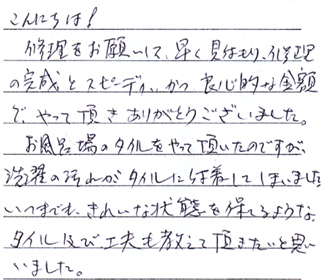 こんにちは!
修理をお願いして、早く見積もり、修理
の完成とスピーディ、かつ良心的な金額
で、やって頂きありがとうございました。
お風呂場のタイルをやって頂いたのですが、
洗濯の汚れがタイルに付着してしまいました
いつまでも、きれいな状態を保てるような
タイル及び工夫も教えて頂きたいと思
いました。